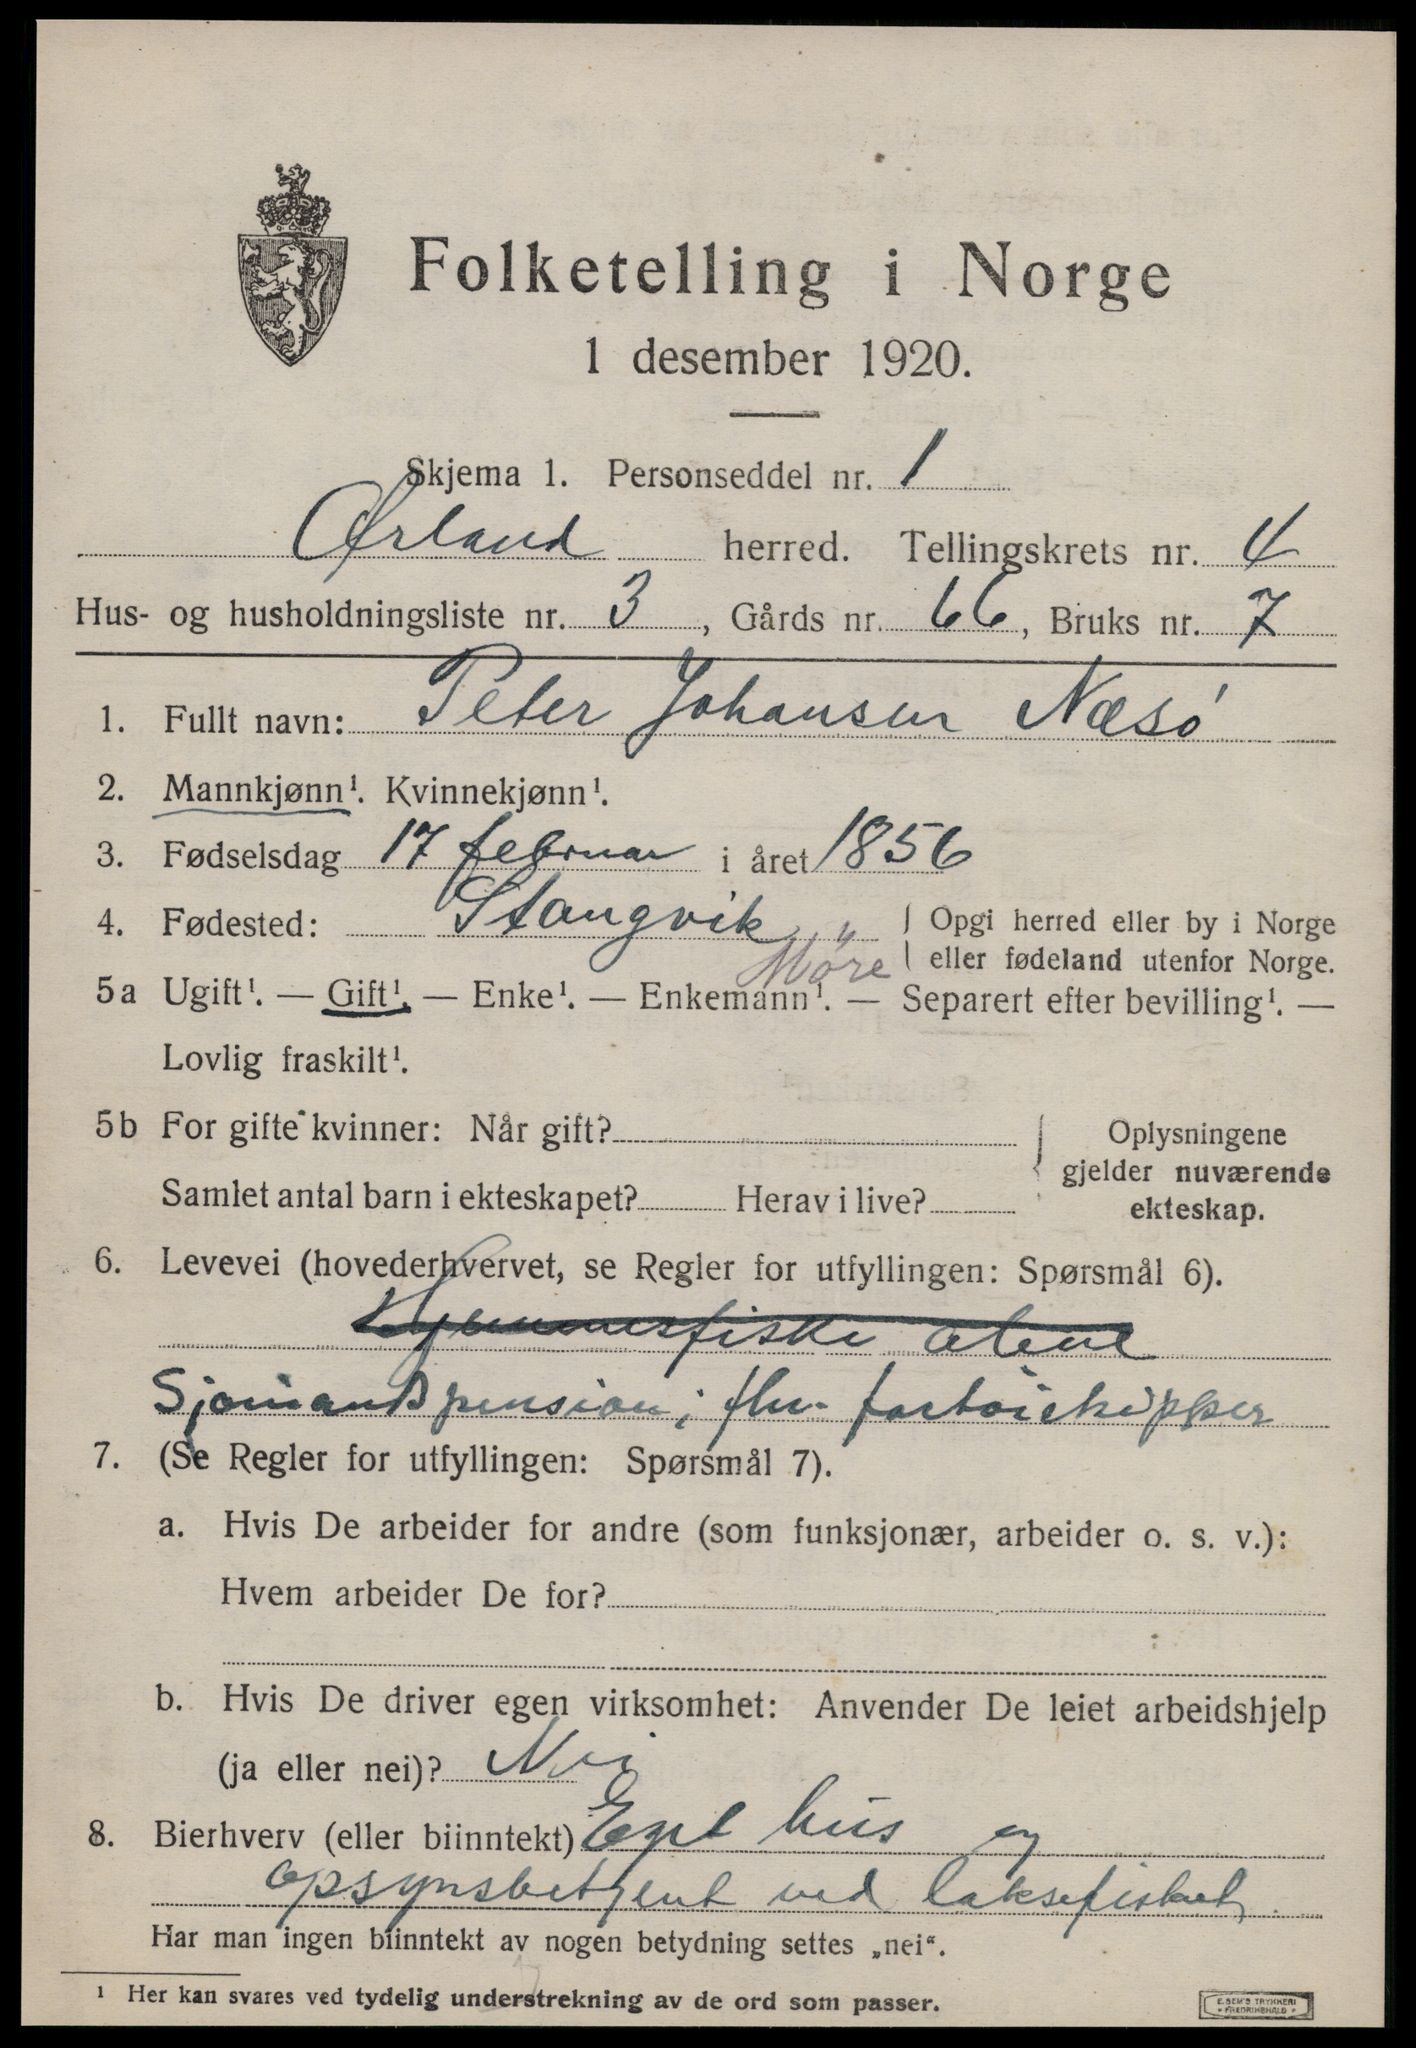 Folketelling i Norge
1 desember 1920.
Skjema 1. Personseddel nr. 1
Ørland herred. Tellingskrets nr. 4
Hus- og husholdningsliste nr. 3, Gårds nr. 66, Bruks nr. 7
1. Fullt navn: Peter Johansen Næsø
2. Mannkjønn¹. Kvinnekjønn¹.
3. Fødselsdag 17 februar i året 1856
4. Fødested: Stangvik { Opgi herred eller by i Norge
Møre eller fødeland utenfor Norge.
5a Ugift¹. — Gift¹. — Enke¹. — Enkemann¹. — Separert efter bevilling¹. —
Lovlig fraskilt¹.
5b For gifte kvinner: Når gift? Oplysningene
gjelder nuværende
Samlet antal barn i ekteskapet? Herav i live? ekteskap.
6. Levevei (hovederhvervet, se Regler for utfyllingen: Spørsmål 6).
Hjemmefiske alene
Sjømandspension; fhv. fartøiskipper
7. (Se Regler for utfyllingen: Spørsmål 7).
a. Hvis De arbeider for andre (som funksjonær, arbeider o. s. v.):
Hvem arbeider De for?
b. Hvis De driver egen virksomhet: Anvender De leiet arbeidshjelp
(ja eller nei)? Nei
8. Bierhverv (eller biinntekt) Eget hus og
opsynsbetjent ved laksefisket
Har man ingen biinntekt av nogen betydning settes „nei“.
¹ Her kan svares ved tydelig understrekning av de ord som passer.
E. SEM'S TRYKKERI
• FREDRIKSHALD •